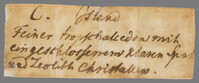 C. Island
Feiner tropfchalcedon mit
eingeschlossenem klaren Spat
und Zeolith Christallen.